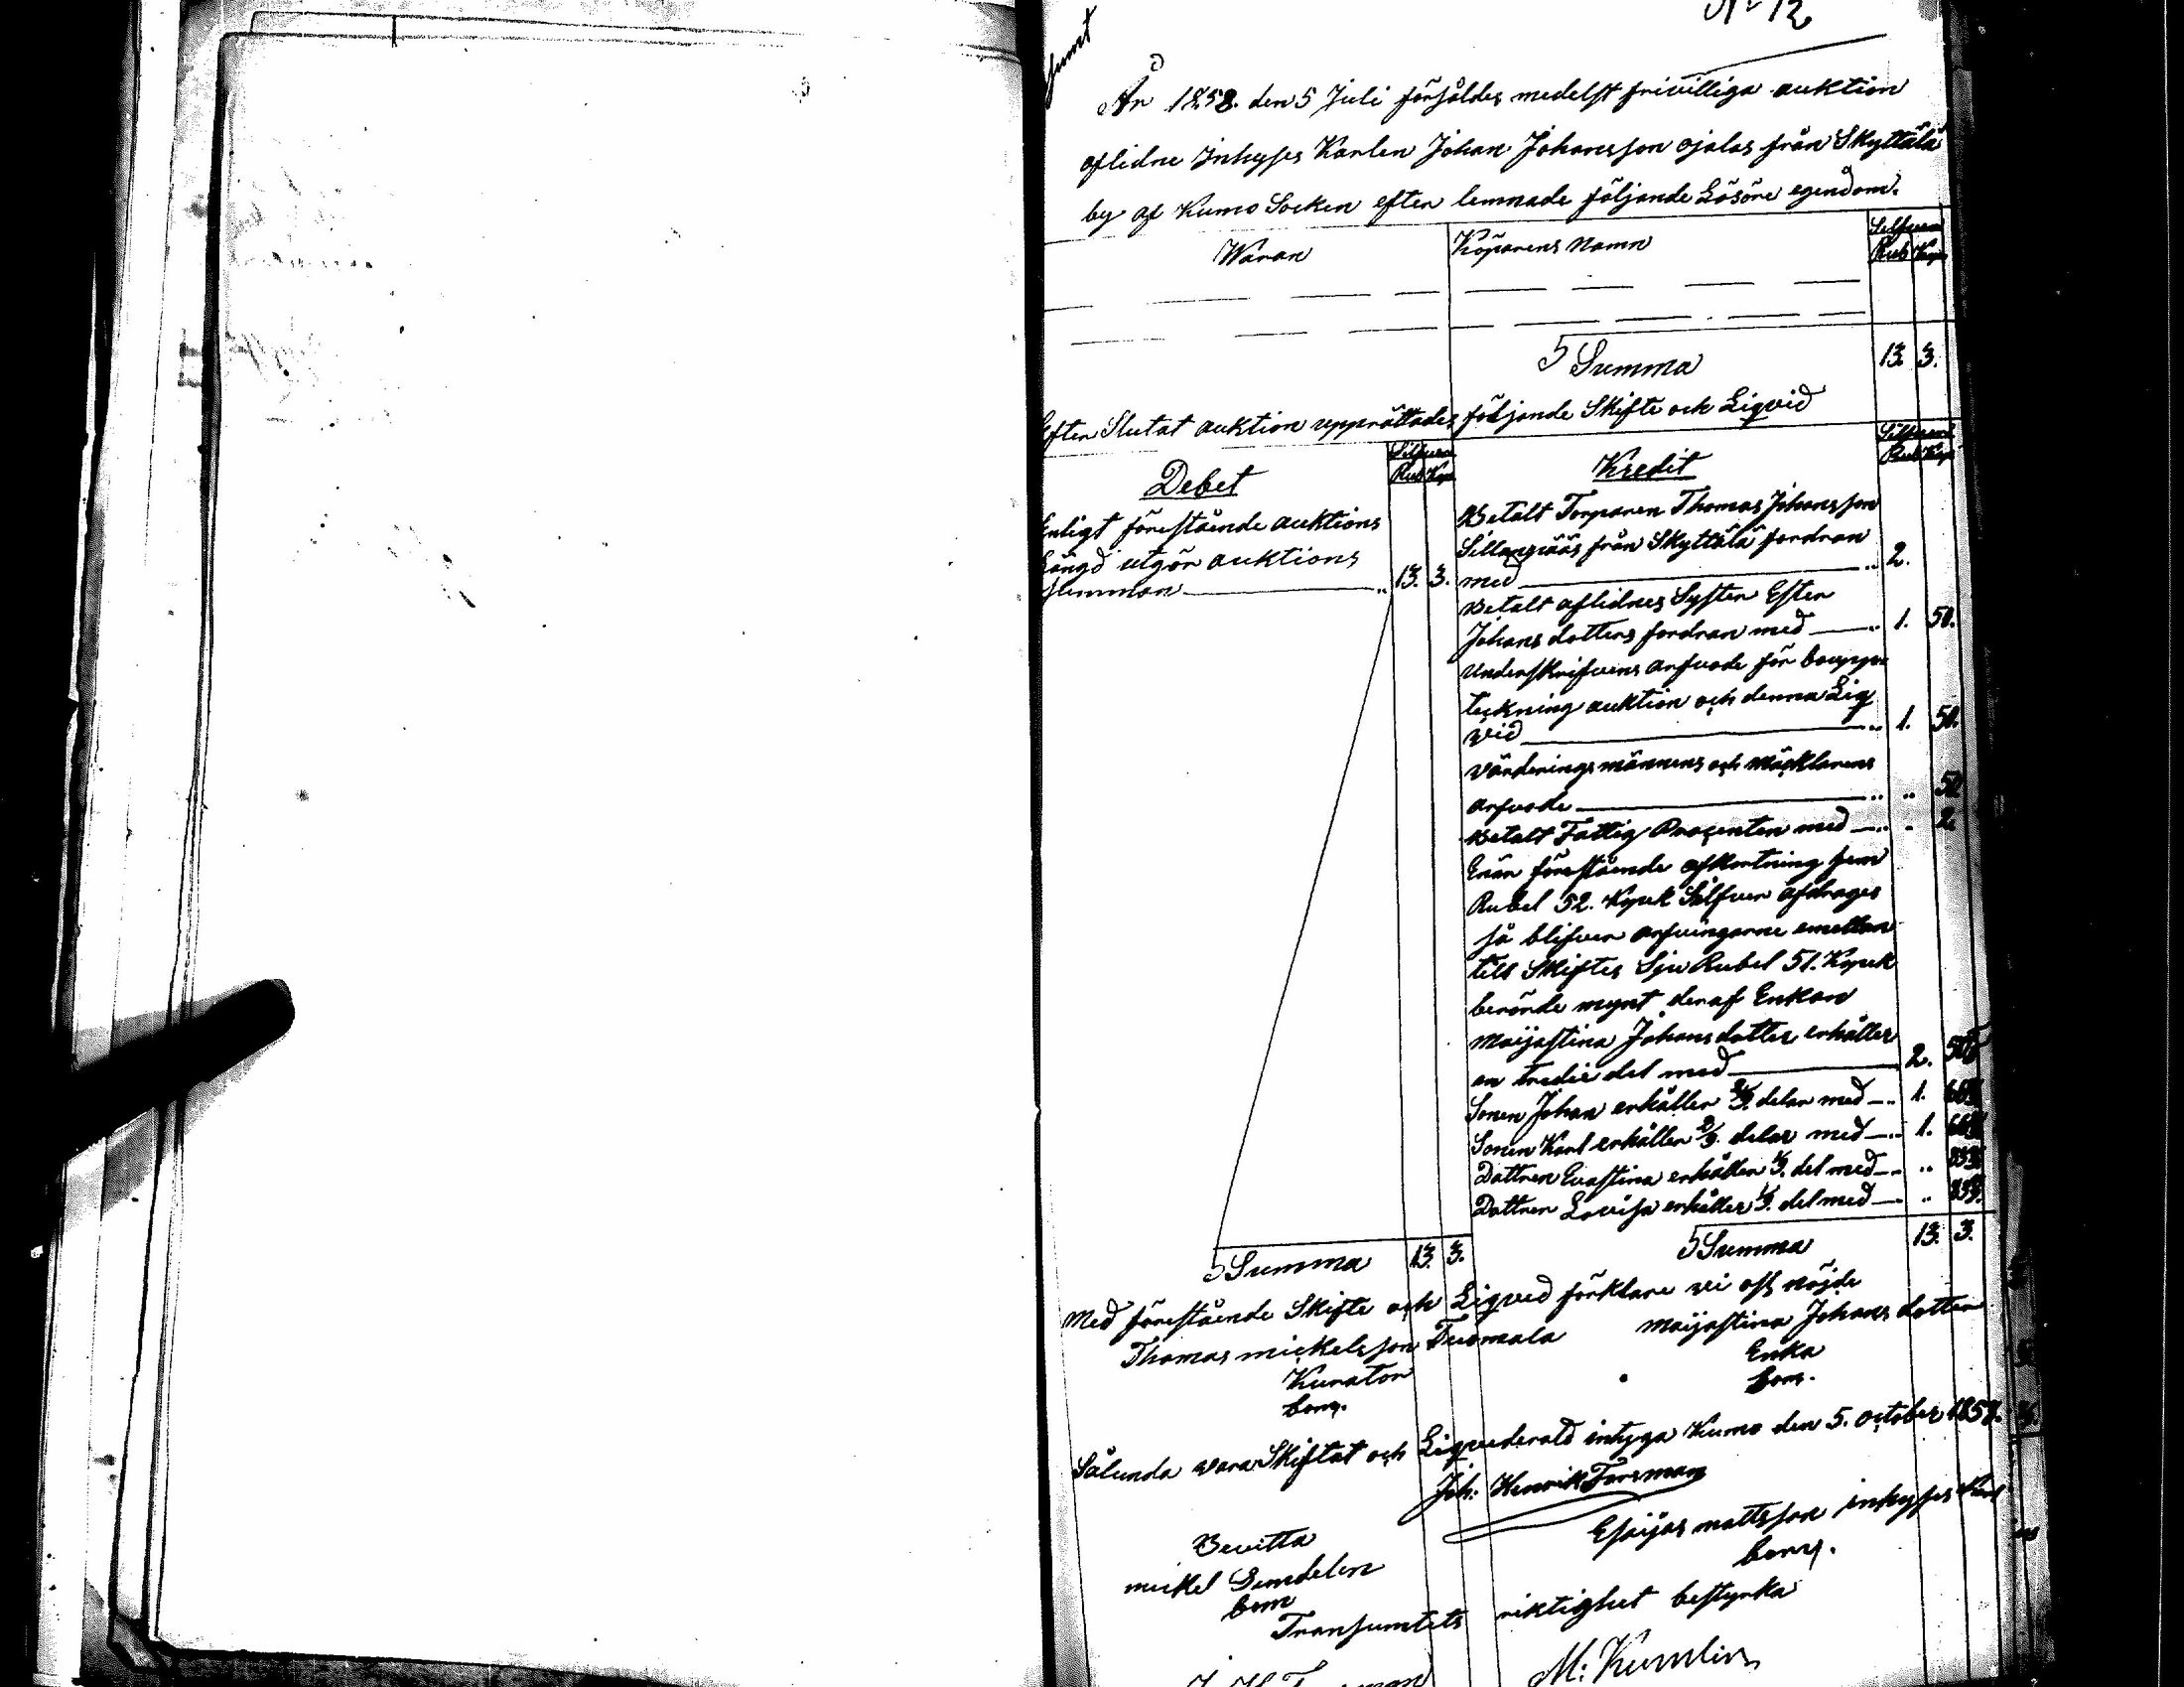 No 12
År 1858. den 5 Juli försåldes medelst frivilliga auktion
aflidne Inhyses Karlen Johan Johansson Ojalas från Skyttälä
by af Kumo Socken efter lemnade följande Lösöre egendom.
Waran Köparens Namn Silfver Rub Kop
S Summa 13. 3.
Efter Slutat auktion upprättades följande Skifte och Liqvid
Debet Silfver Rub Kop
Enligt förestående auktions
Längd utgör auktions
summan 13. 3.
S Summa 13. 3.
Kredit Silfver Rub Kop
Betalt Torparen Thomas Johansson
från Skyttälä fordran
med 2.
Betalt aflidnes Syster Ester
Johans dotters fordran med 1. 50.
Underskrifvens arfvode för boupp
teckning auktion och denna Liq
vid 1. 50.
Värderings männens och mäcklarens
arfvode 50
Betalt Fattig Procenten med 2
Enär förestående afkortning fem
Rubel 52. Kopek Silfver afdrages
så blifver arfvingarne emellan
till Skiftes Sju Rubel 51. Kopek
berörde mynt deraf Enkan
Maijastina Johans dotter erhåller
en tredie del med 2.
Sonen Johan erhåller 2/9. delar med 1.
Sonen Karl erhåller 2/9. delar med 1.
Dottren Evastina erhåller 1/9. del med
Dottren Lovisa erhåller 1/9. del med
S Summa 13. 3.
Med förestående Skifte och Liqved förklare vi oss nöjde
Thomas Mickelsson Tuomala Maijastina Johans dotter
Kurator Enka
bom. bom.
Sålunda vara Skiftat och Liqvederat intyga Kumo den 5. October 1858.
Joh: Henrik Forsman
Bevitta Esaijas Mattsson inhyses Karl
Mickel bom.
bom
Transumtets riktighet bestyrka
M: Kumlin